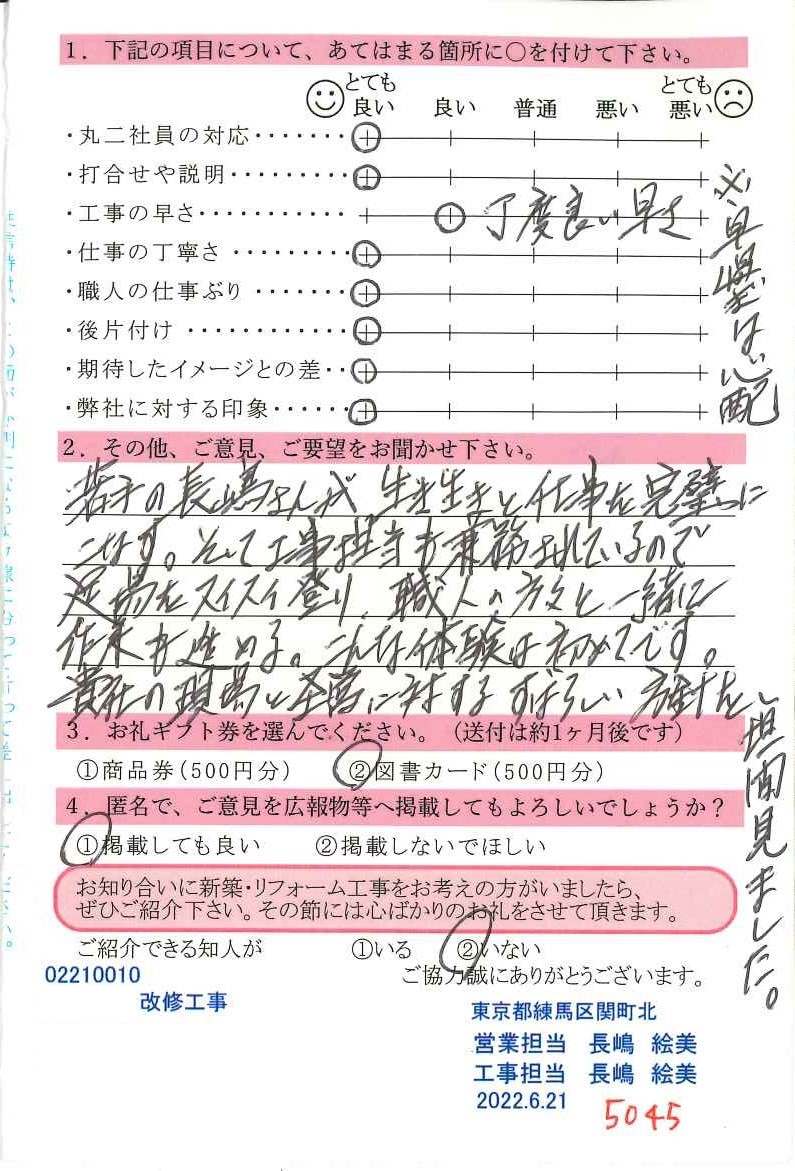 1．下記の項目について、あてはまる箇所に○を付けて下さい。
とても良い　良い　普通　悪い　とても悪い
・丸二社員の対応・・・・・・・
・打合せや説明・・・・・・・・・
・工事の早さ・・・・・・・・・・・ 丁度良い早さ
・仕事の丁寧さ ・・・・・・・・・
・職人の仕事ぶり ・・・・・・・
・後片付け ・・・・・・・・・・・・
・期待したイメージとの差・・
・弊社に対する印象・・・・・・
早
は心配
2．その他、ご意見、ご要望をお聞かせ下さい。
若手の長嶋さんが、生き生きと仕事を完璧に
こなす。そして工事担当も兼務されているので
足場をスイスイ登り、職人の方々と一緒に
作業も進める。こんな体験は初めてです。
貴社の現場と に対するすばらしい方針を
垣間見ました。
3．お礼ギフト券を選んでください。（送付は約1ヶ月後です）
①商品券（500円分）　②図書カード（500円分）
4．匿名で、ご意見を広報物等へ掲載してもよろしいでしょうか？
①掲載しても良い　②掲載しないでほしい
お知り合いに新築・リフォーム工事をお考えの方がいましたら、
ぜひご紹介下さい。その節には心ばかりのお礼をさせて頂きます。
ご紹介できる知人が　①いる　②いない
ご協力誠にありがとうございます。
02210010
改修工事
東京都練馬区関町北
営業担当　長嶋　絵美
工事担当　長嶋　絵美
2022.6.21
5045